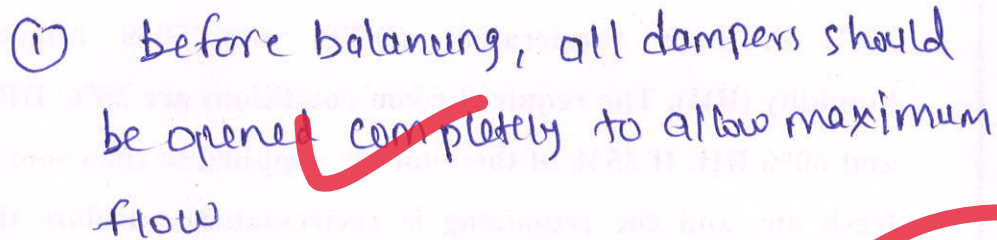 ① Before balancing, all dampers should
be opened completely to allow maximum
flow